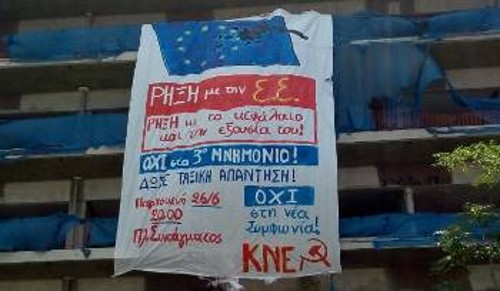 ΡΗΞΗ με την Ε.Ε.
ΡΗΞΗ με το κεφάλαιο
και την εξουσία του!
ΟΧΙ στο 3º ΜΝΗΜΟΝΙΟ!
ΔΩΣΕ ΤΑΞΙΚΗ ΑΠΑΝΤΗΣΗ!
Παρασκευή 26/6
20:00
Πλ. Συντάγματος
ΟΧΙ
στη νέα
Συμφωνία!
ΚΝΕ